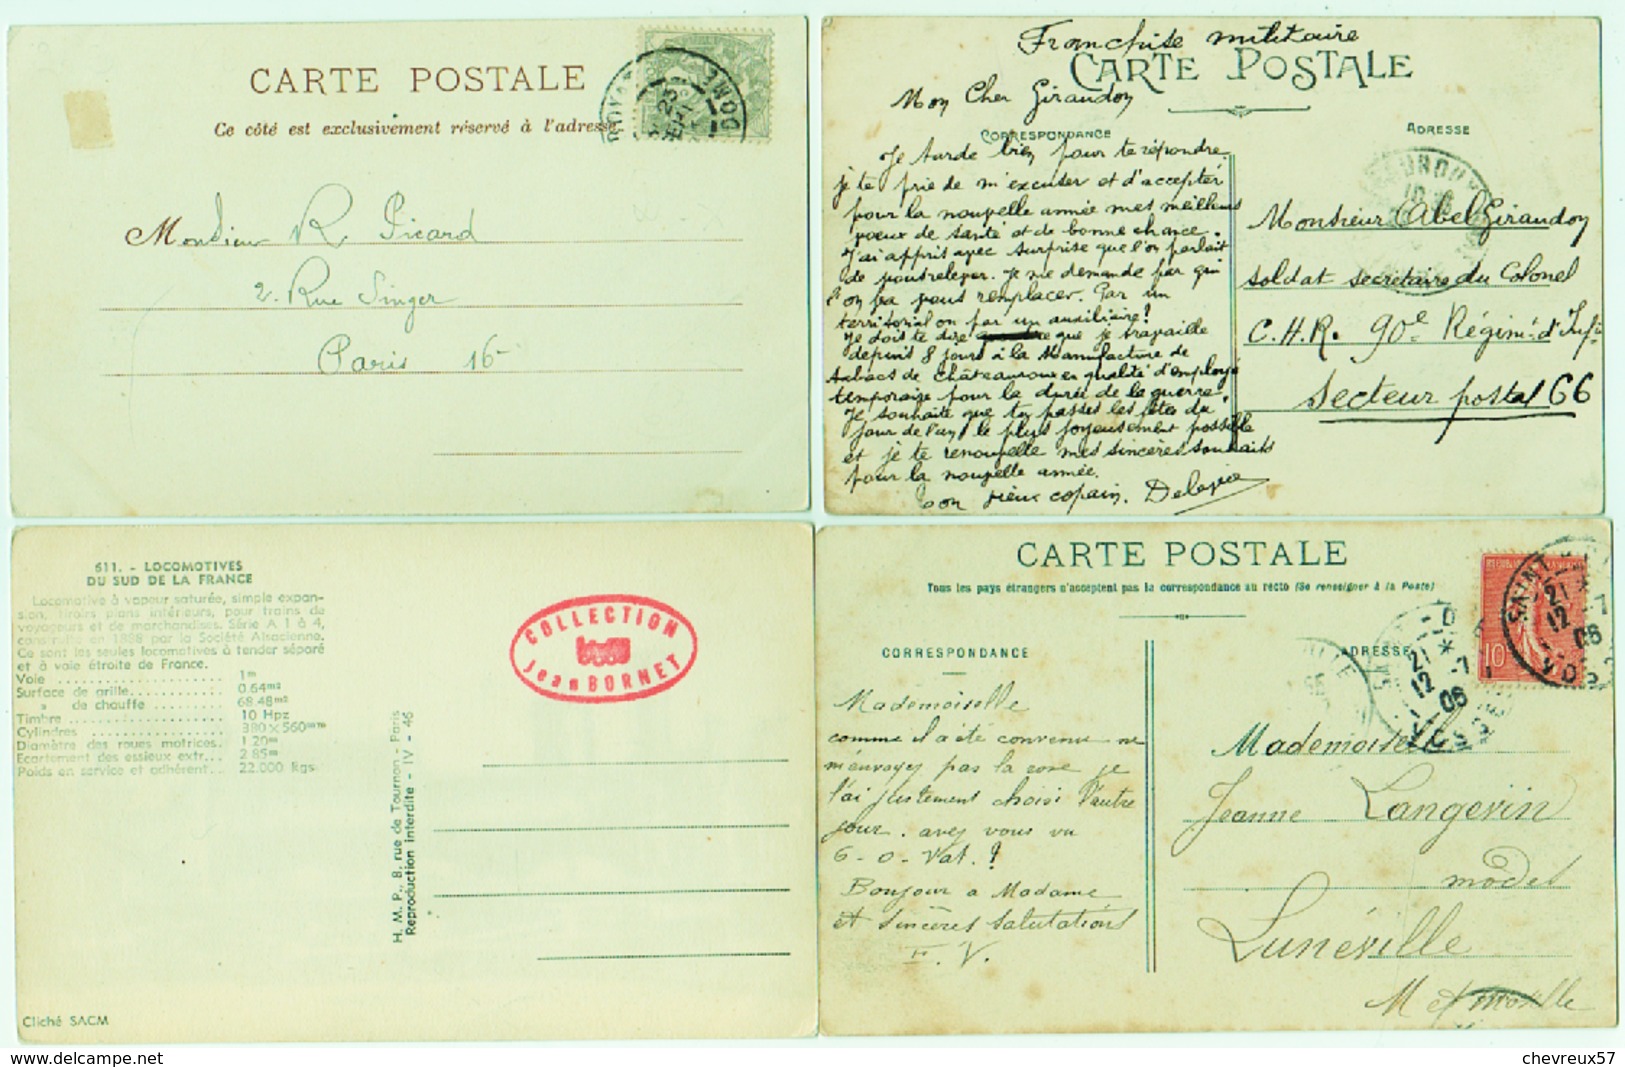 CARTE POSTALE
Ce côté est exclusivement réservé à l'adresse.
Monsieur R Picard
2. Rue Singer
Paris 16
Franchise militaire
CARTE POSTALE
Mon Cher Giraudon
CORRESPONDANCE
Je tarde bien pour te répondre.
je te prie de m'excuser et d'accepter
pour la nouvelle année mes meilleurs
voeux de santé et de bonne chance.
J'ai appris avec surprise que l'on parlait
de vous relever. Je me demande par qui
l'on va vous remplacer. Par un
territorial ou par un auxiliaire?
Je dois te dire que je travaille
depuis 8 jours à la Manufacture de
tabacs de Châteauroux en qualité d'employé
temporaire pour la durée de la guerre.
Je souhaite que tu passes les fêtes du
jour de l'an le plus joyeusement possible
et je te renouvelle mes sincères souhaits
pour la nouvelle année.
Ton vieux copain.
ADRESSE
Monsieur Abel Giraudon
soldat secrétaire du Colonel
C.H.R. 90e Régim.t d'Inf.ie
Secteur postal 66
611. - LOCOMOTIVES
DU SUD DE LA FRANCE
Locomotive à vapeur saturée, simple expan-
sion, tiroirs plans intérieurs, pour trains de
voyageurs et de marchandises. Série A 1 à 4,
construite en 1888 par la Société Alsacienne.
Ce sont les seules locomotives à tender séparé
et à voie étroite de France.
Voie ........................ 1 m
Surface de grille............. 0.64 m2
» de chauffe ........... 68.48 m2
Timbre ..................... 10 Hpz
Cylindres .................. 380×560 mm
Diamètre des roues motrices. 1.20 m
Ecartement des essieux extr... 2.85 m
Poids en service et adhérent... 22.000 kgs
Cliché SACM
H. M. P., 8, rue de Tournon - Paris
Reproduction interdite - IV - 46
COLLECTION
Jean BORNET
CARTE POSTALE
Tous les pays étrangers n'acceptent pas la correspondance au recto (Se renseigner à la Poste)
CORRESPONDANCE
Mademoiselle
comme il a été convenu ne
m'envoyez pas la rose je
l'ai justement choisi l'autre
jour. avez vous vu
6-0-Vat.?
Bonjour a Madame
et sincères salutations
F. V.
ADRESSE
10
21 -7
12 06
21 -7
12 06
Mademoiselle
Jeanne Langevin
modes
Lunéville
M et Moselle
chevreux57